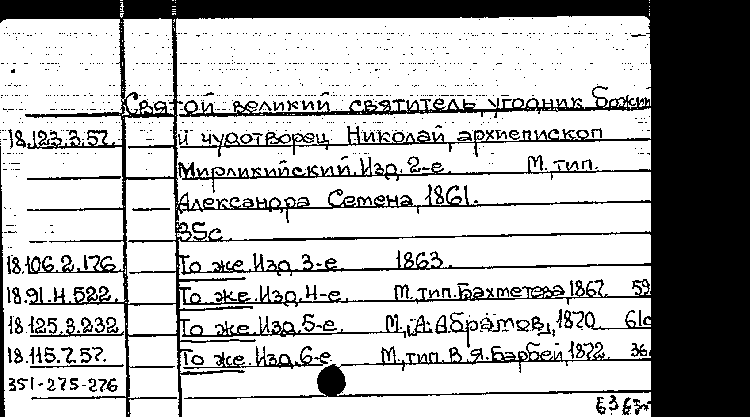 Святой великий святитель, угодник Божий
18.123.3.57. и чудотворец Николай, архиепископ
Мирликийский. Изд. 2-е. М., тип.
Александра Семена, 1861.
35с.
18.106.2.176. То же. Изд. 3-е. 1863.
18.91.4.522. То же. Изд. 4-е. М., тип. Бахметева, 1867. 59
18.125.3.232. То же. Изд. 5-е. М., "А. Абрамов", 1870. 61с
18.115.7.57. То же. Изд. 6-е. М., тип. В.Я. Барбей, 1872. 36
351-275-276